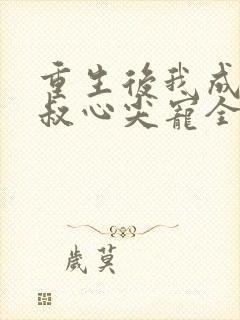 重生後我成
叔心尖寵全
歲莫